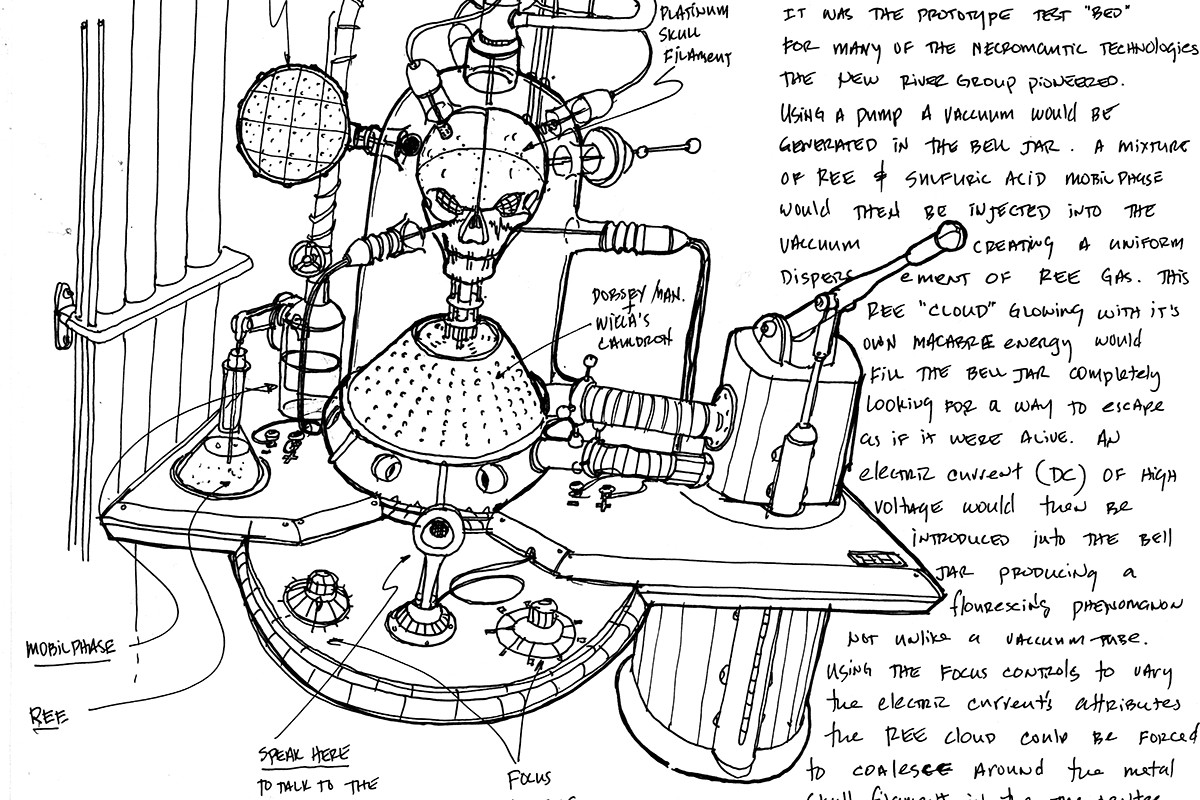 PLATINUM
SKULL
FILAMENT
IT WAS THE PROTOTYPE TEST "BED"
FOR MANY OF THE NECROMANTIC TECHNOLOGIES
THE NEW RIVER GROUP PIONEERED.
USING A PUMP A VACCUUM WOULD BE
GENERATED IN THE BELL JAR. A MIXTURE
OF REE & SULFURIC ACID MOBILPHASE
WOULD THEN BE INJECTED INTO THE
VACCUUM CREATING A UNIFORM
DISPERSEMENT OF REE GAS. THIS
REE "CLOUD" GLOWING WITH IT'S
OWN MACABREE ENERGY WOULD
FILL THE BELL JAR COMPLETELY
LOOKING FOR A WAY TO ESCAPE
AS IF IT WERE ALIVE. AN
ELECTRIC CURRENT (DC) OF HIGH
VOLTAGE WOULD THEN BE
INTRODUCED INTO THE BELL
JAR PRODUCING A
FLOURESCING PHENOMONON
NOT UNLIKE A VACCUUM-TUBE.
USING THE FOCUS CONTROLS TO VARY
THE ELECTRIC CURRENT'S ATTRIBUTES
THE REE CLOUD COULD BE FORCED
TO COALESCE AROUND THE METAL
SKULL FILAMENT IN THE
DORSEY MAN.
+
WIELA'S
CAULDRON
MOBILPHASE
REE
SPEAK HERE
TO TALK TO THE
FOCUS